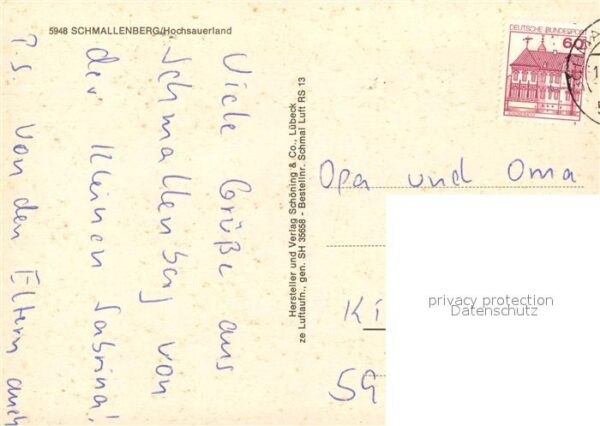 5948 SCHMALLENBERG/Hochsauerland
Viele Grüße aus
Schmallenberg von
der kleinen Sabrina!
P.S von den Eltern auch
Hersteller und Verlag Schöning & Co., Lübeck
ze Luftaufn., gen. SH 35658 - Bestellnr. Schmal Luft RS 13
DEUTSCHE BUNDESPOST
60
Opa und Oma
privacy protection
Datenschutz
Ki
59